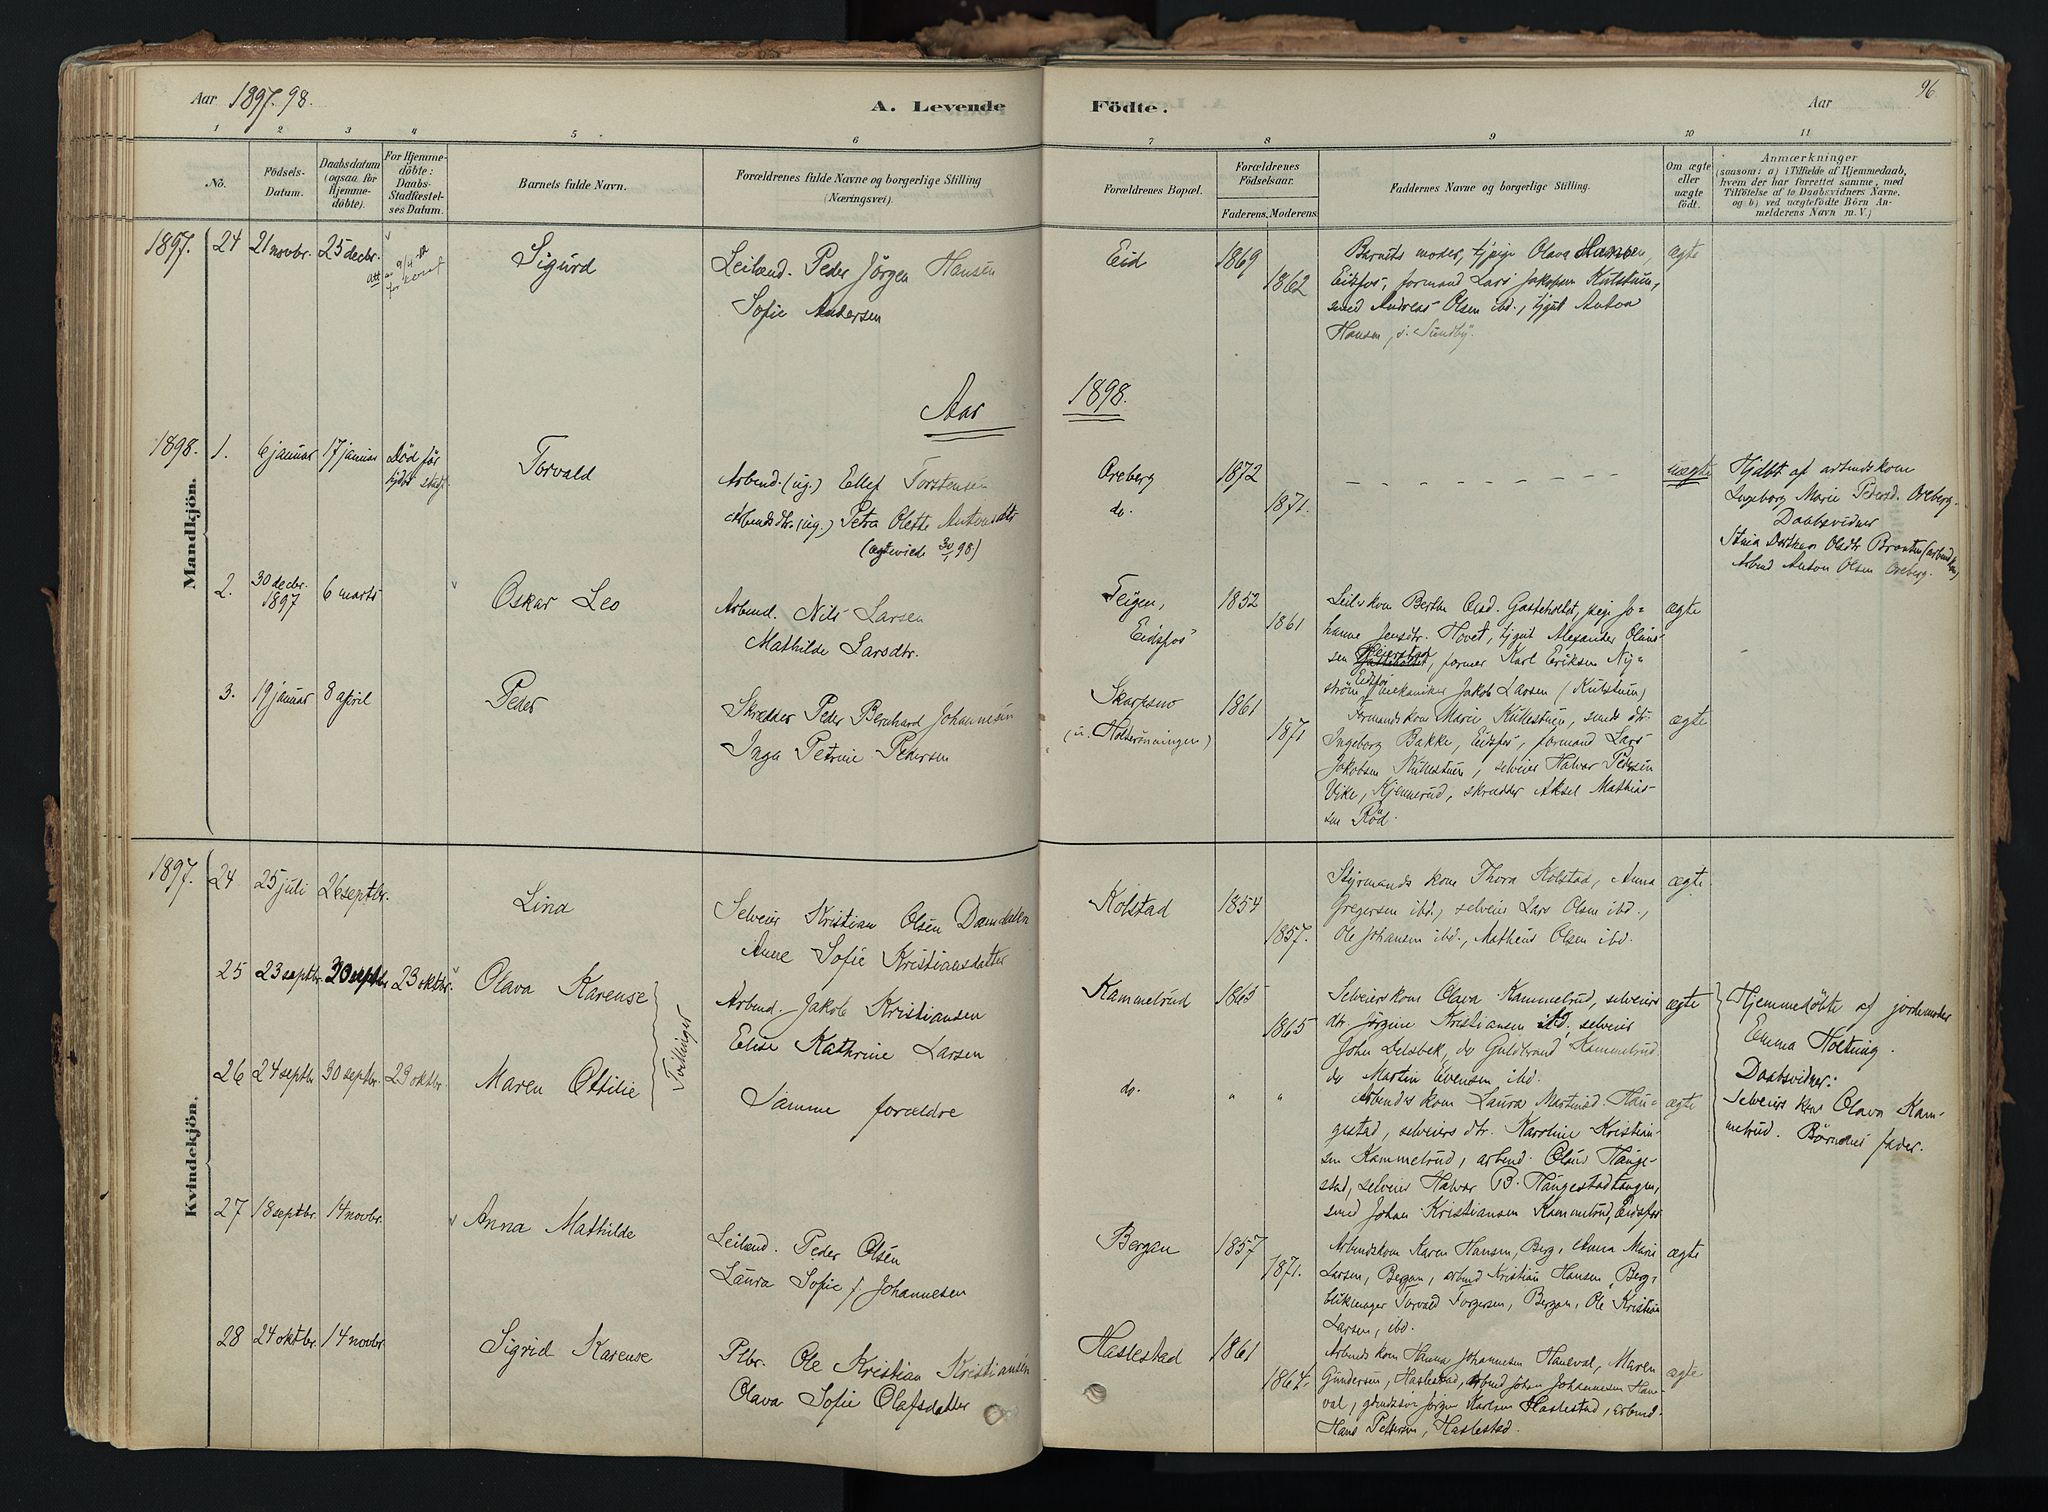 Aar 1897. 98.
A. Levende Födte.
Aar
96
1 2 3 4 5 6 7 8 9 10 11
No.
Födsels-Datum.
Daabsdatum (ogsaa for Hjemme-döbte).
For Hjemme-döbte: Daabs-Stadfæstel-ses Datum.
Barnets fulde Navn.
Forældrenes fulde Navne og borgerlige Stilling (Næringsvei).
Forældrenes Bopæl.
Forældrenes Födselsaar.
Faderens. Moderens.
Faddernes Navne og borgerlige Stilling.
Om ægte eller uægte födt.
Anmærkninger
(saasom: a) i Tilfælde af Hjemmedaab, hvem der har forrettet samme, med Tilföielse af to Daabsvidners Navne, og b) ved uægtefödte Börn Anmelderens Navn m. V.)
Mandkjön.
1897. 24 21 novbr. 25 decbr. Sigurd
Leilænd. Peder Jörgen Hansen
Sofie Andersen
Eid 1869 1862
Barnets moder, tjpige Olava Hansen,
Eidsfos, formand Lars Jakobsen Kulstuen,
smed Andreas Olsen ibd., tjgut Anton
Hansen, s. Sundby.
ægte
Aar 1898.
1898. 1. 6 januar 17 januar Död før Torvald
Arbeid. (ug.) Ellef Torstensen
Arbeidsdtr. (ug.) Petra Olette Antonsdtr
(ægteviede 30/1 98)
Oreberg 1872
do. 1871.
uægte
Hjdbt af arbeidskom
Ingeborg Marie Pedersd. Oreberg.
Daabsvidner
Arbeid Anton Olsen Oreberg.
2. 30 decbr. 1897 6 marts Oskar Leo
Arbeid. Nils Larsen
Mathilde Larsdtr.
Teigen, 1852
Eidsfos 1861
Leil.kom Berthe Olsd. Gasteholtet, pige Jo-
hanne Jensdtr. Hovet, tjgut Alexander Olaus-
sen, former Karl Eriksen Ny-
ström Eidsfos, mekaniker Jakob Larsen (Kulstuen)
ægte
3. 19 januar 8 april Peder
Skrædder Peder Bernhard Johannesen
Inga Petrine Pedersen
Skarpsno 1861
(u. Holterönningen) 1871
Formandskom Marie Kullestuen, smeds dtr.
Ingeborg Bakke, Eidsfos, formand Lars
Jakobsen Kullestuen, selveier Halvor Pedersen
Vike, Kjennerud, skrædder Aksel Mathias-
sen Röd.
ægte
Kvindekjön.
1897. 24 25 juli 26 septbr. Lina
Selveier Kristian Olsen Damdalen
Anne Sofie Kristiansdatter
Kolstad 1854 1857.
Styrmands kom Thora Kolstad, Anna
Gregersen ibd., selveier Lars Olsen ibd.,
Ole Johansen ibd., Matheus Olsen ibd.
ægte
25 23 septbr. 30 septbr 23 oktbr. Olava Karense
Tvillinger
Arbeid. Jakob Kristiansen
Elise Kathrine Larsen
Kammelrud 1865 1865
Selveierskom Olava Kammelrud, selveiers
dtr. Jörgine Kristiansen ibd. selveier
John Lelsbek, do Guldbrand Kammelrud
do Martin Evensen ibd.
ægte
Hjemmedöbte af jordemoder
Emma Holtung.
Daabsvidner:
Selveiers kone Olava Kam-
melrud. Börnenes fader.
26 24 septbr 30 septbr. 23 oktbr. Maren Ottilie
Samme forældre
do. " "
Arbeides kom Laura Martinsd. Hau-
gestad, selveiers dtr. Karoline Kristian-
sen Kammelrud, arbeid. Olaus Hauge-
stad, selveier Halvor B. Haugestadtangen,
smed Johan Kristiansen Kammelrud, Eidsfos
ægte
27 18 septbr. 14 novbr. Anna Mathilde
Leilænd. Peder Olsen
Laura Sofie f. Johannesen
Bergan 1857 1871.
Arbeidskom Karen Hansen, Berg, Anna Marie
Larsen, Bergan, arbeid Kristian Hansen, Berg,
blikmager Torvald Torgersen, Bergan, Ole Kristian
Larsen, ibd.
ægte
28 24 oktbr. 14 novbr. Sigrid Karense
Plbr. Ole Kristian Kristiansen
Olava Sofie Olafsdatter
Haslestad 1861 1864.
Arbeids kom Hanna Johannesen Haneval, Maren
Gundersen, Haslestad, arbeid Johan Johannesen Han-
val, grdssön Jörgen Karlsen Haslestad, arbeid.
Hans Pettersen, Haslestad.
ægte